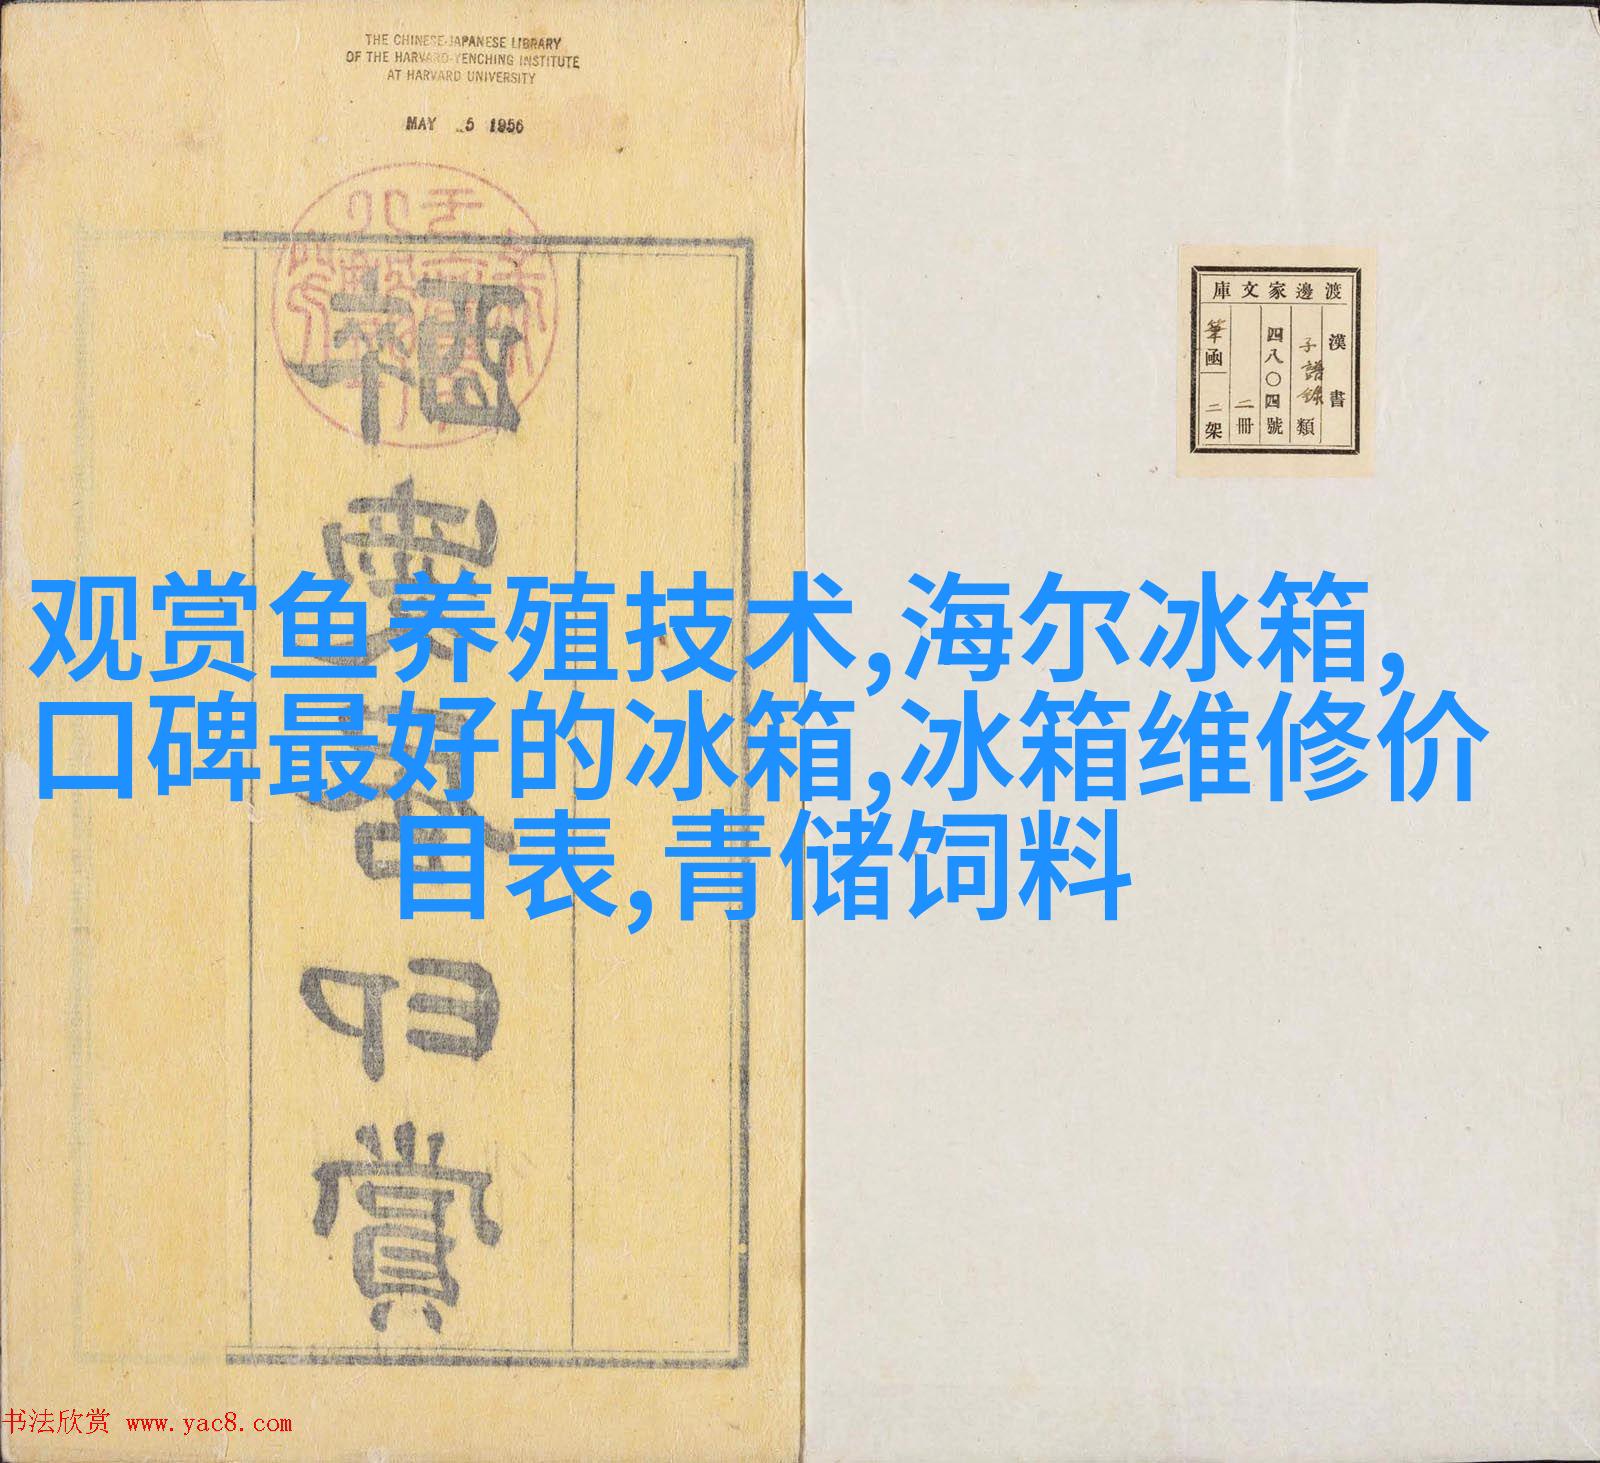 THE CHINESE-JAPANESE LIBRARY
OF THE HARVARD-YENCHING INSTITUTE
AT HARVARD UNIVERSITY
MAY 5 1956
渡邊家文庫
漢書
子譜錄類
四八〇四號
二冊
筆函二架
观赏鱼养殖技术,海尔冰箱,
口碑最好的冰箱,冰箱维修价
目表,青储饲料
賞
书法欣赏 www.yac8.com